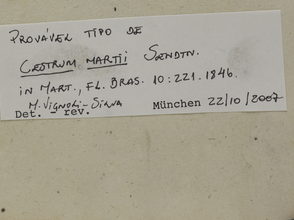 PROVÁVEL TIPO DE
CESTRUM MARTII SENDTN.
IN MART., FL. BRAS. 10:221.1846.
M. VIGNOLI-SILVA
Det. - rev. München 22/10/2007